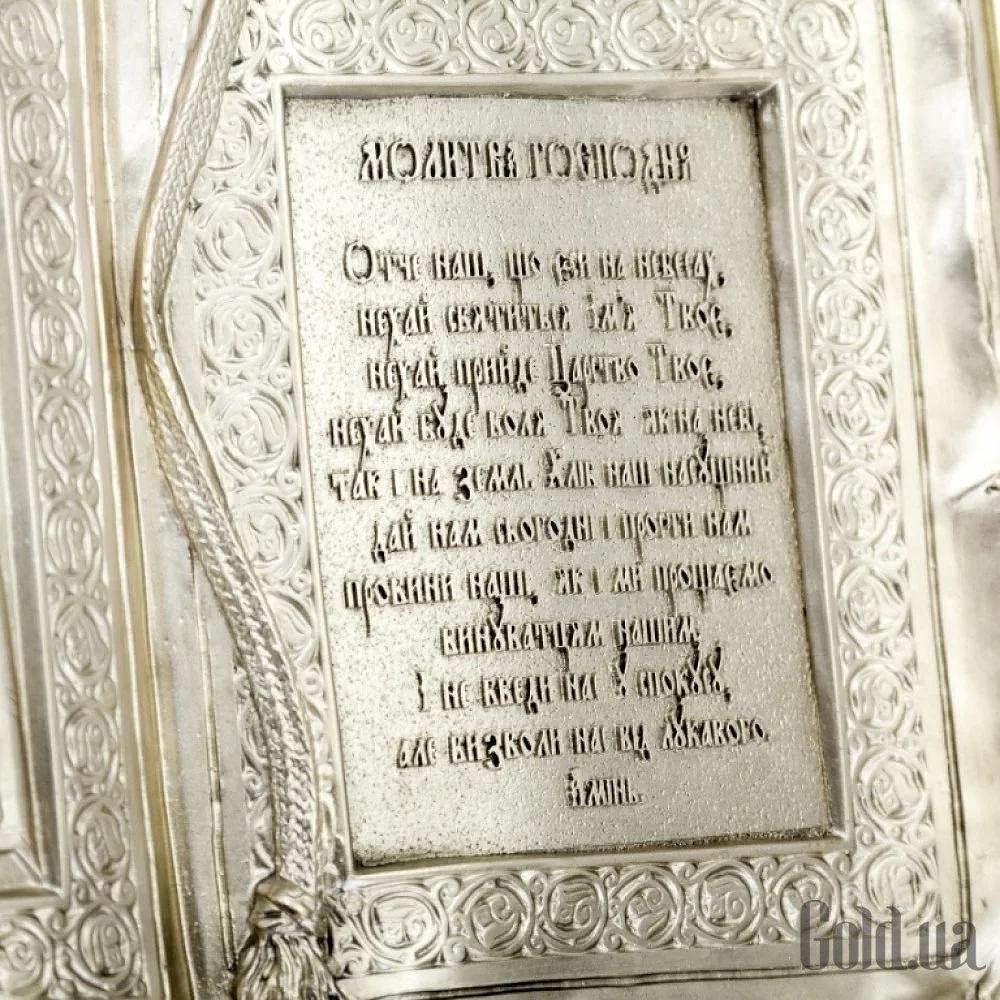 Молитва Господня
Отче наш, що єси на небесах,
нехай святиться Ім'я Твоє,
нехай прийде Царство Твоє,
нехай буде воля Твоя як на небі,
так і на землі. Хліб наш насущний
дай нам сьогодні і прости нам
провини наші, як і ми прощаємо
винуватцям нашим
І не введи нас у спокусу,
але визволи нас від лукавого.
Амінь.
Gold.ua